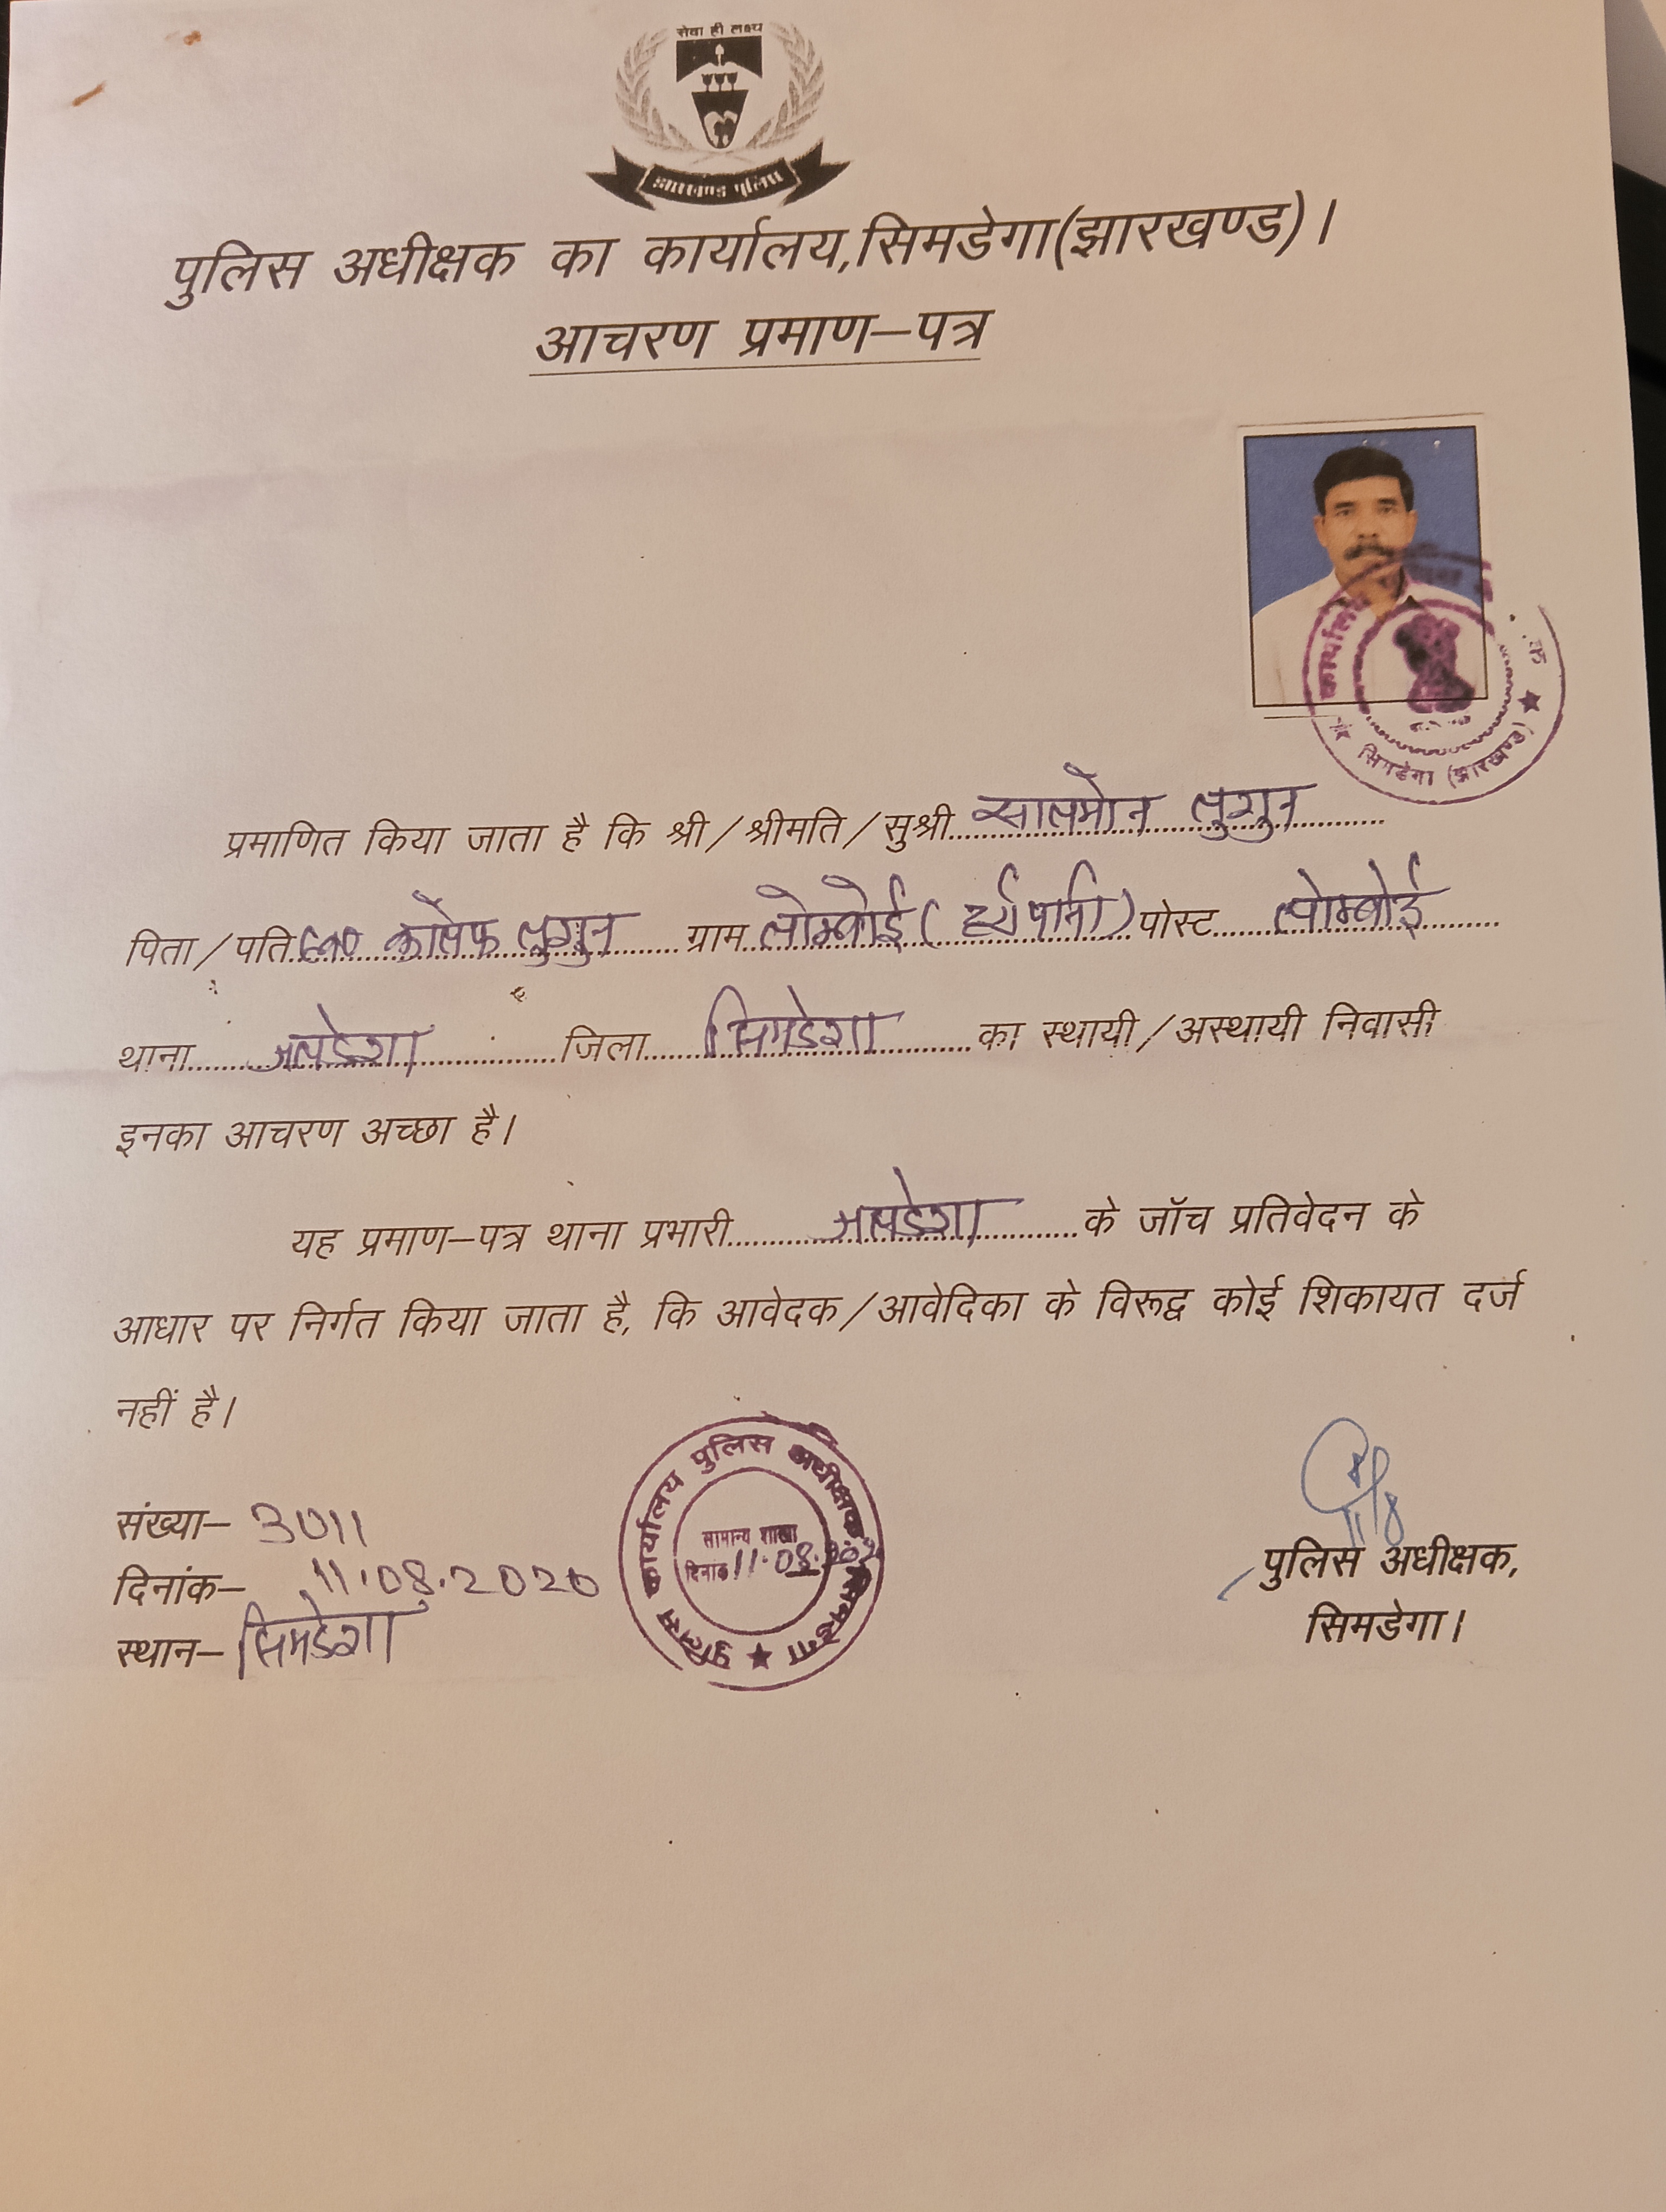 सेवा ही लक्ष्य
झारखण्ड पुलिस
पुलिस अधीक्षक का कार्यालय,सिमडेगा(झारखण्ड)।
आचरण प्रमाण–पत्र
कार्यालय
सिमडेगा (झारखण्ड)
प्रमाणित किया जाता है कि श्री/श्रीमति/सुश्री सालमोन लुगुन
पिता/पति लुगुन ग्राम लोम्बोई ( ) पोस्ट लोम्बोई
थाना जलडेगा जिला सिमडेगा का स्थायी/अस्थायी निवासी
इनका आचरण अच्छा है।
यह प्रमाण–पत्र थाना प्रभारी जलडेगा के जॉच प्रतिवेदन के
आधार पर निर्गत किया जाता है, कि आवेदक/आवेदिका के विरूद्व कोई शिकायत दर्ज
नहीं है।
कार्यालय पुलिस अधीक्षक सिमडेगा ★ पुलिस
सामान्य शाखा
दिनांक 11.08.
संख्या– 3011
दिनांक– 11.08.2020
स्थान– सिमडेगा
11/8
पुलिस अधीक्षक,
सिमडेगा।